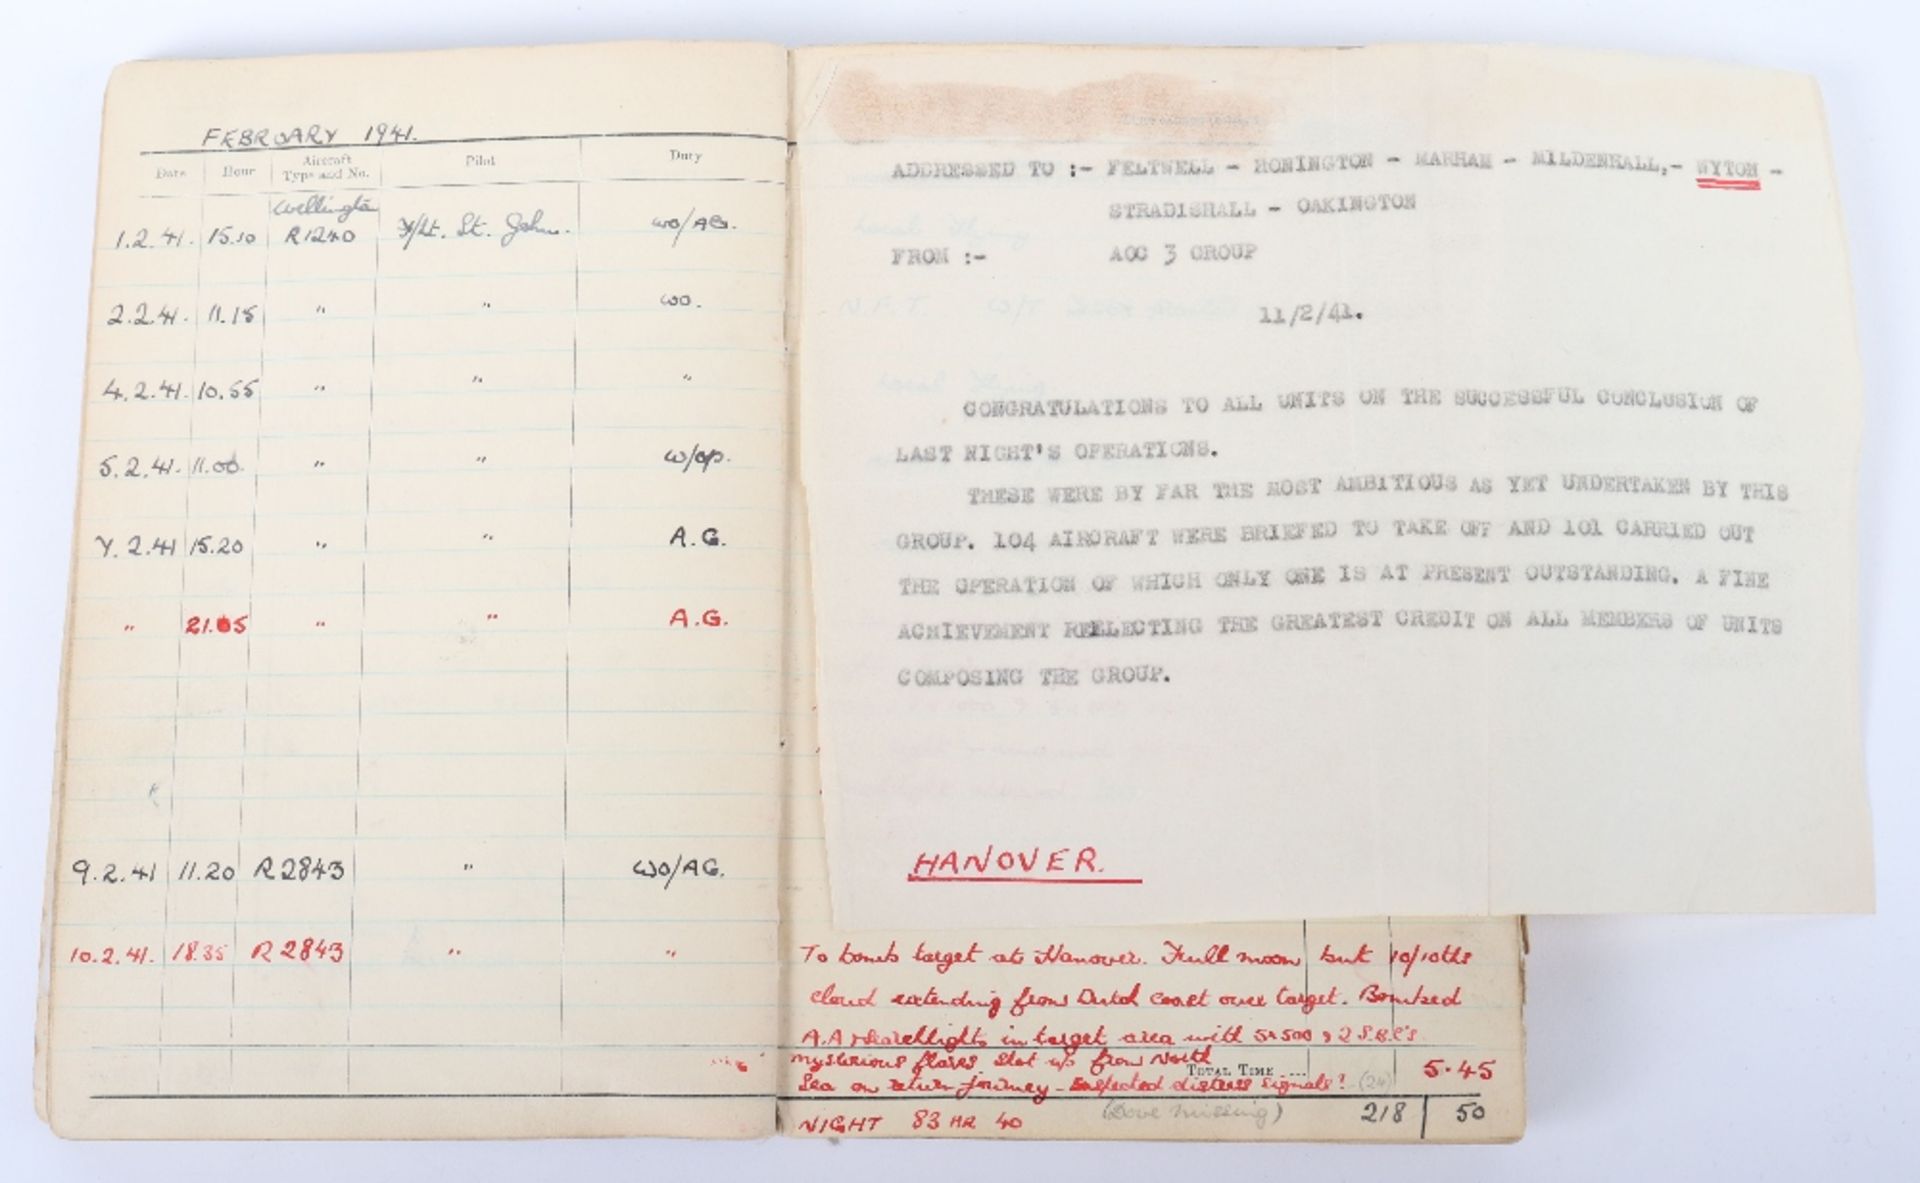 FEBRUARY 1941.
Date Hour Aircraft Type and No. Pilot Duty
Wellington
1.2.41. 15.10 R1240 F/Lt. St. John. WO/AG.
2.2.41. 11.15 " " WO.
4.2.41. 10.55 " " "
5.2.41. 11.00 " " W/OP.
7.2.41 15.20 " " A.G.
" 21.05 " " A.G.
9.2.41 11.20 R2843 " WO/AG.
10.2.41. 18.35 R2843 " "
ADDRESSED TO :- FELTWELL - HONINGTON - MARHAM - MILDENHALL,- WYTON -
STRADISHALL - OAKINGTON
FROM :- AOC 3 GROUP
11/2/41.
CONGRATULATIONS TO ALL UNITS ON THE SUCCESSFUL CONCLUSION OF
LAST NIGHT'S OPERATIONS.
THESE WERE BY FAR THE MOST AMBITIOUS AS YET UNDERTAKEN BY THIS
GROUP. 104 AIRCRAFT WERE BRIEFED TO TAKE OFF AND 101 CARRIED OUT
THE OPERATION OF WHICH ONLY ONE IS AT PRESENT OUTSTANDING. A FINE
ACHIEVEMENT REFLECTING THE GREATEST CREDIT ON ALL MEMBERS OF UNITS
COMPOSING THE GROUP.
HANOVER.
To bomb target at Hanover. Full moon but 10/10ths
cloud extending from Dutch coast over target. Bombed
A.A & Searchlights in target area with 5x500 & 2 S.B.C's
mysterious flares shot up from North
Sea on return journey - suspected distress signals! (24)
TOTAL TIME ... 5.45
NIGHT 83 HR 40 (Dove missing) 218 50